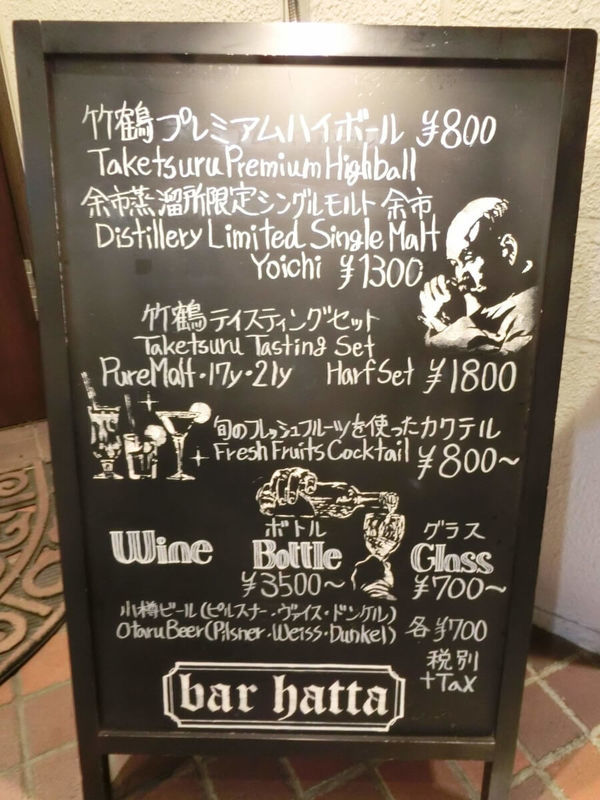 竹鶴プレミアムハイボール ¥800
Taketsuru Premium Highball
余市蒸溜所限定シングルモルト 余市
Distillery Limited Single Malt
Yoichi ¥1300
竹鶴テイスティングセット
Taketsuru Tasting Set
Pure Malt・17y・21y Harf Set ¥1800
旬のフレッシュフルーツを使ったカクテル
Fresh Fruits Cocktail ¥800~
ボトル グラス
Wine Bottle Glass
¥3500~ ¥700~
小樽ビール(ピルスナー・ヴァイス・ドンケル)
Otaru Beer(Pilsner・Weiss・Dunkel) 各¥700
税別
+Tax
bar hatta